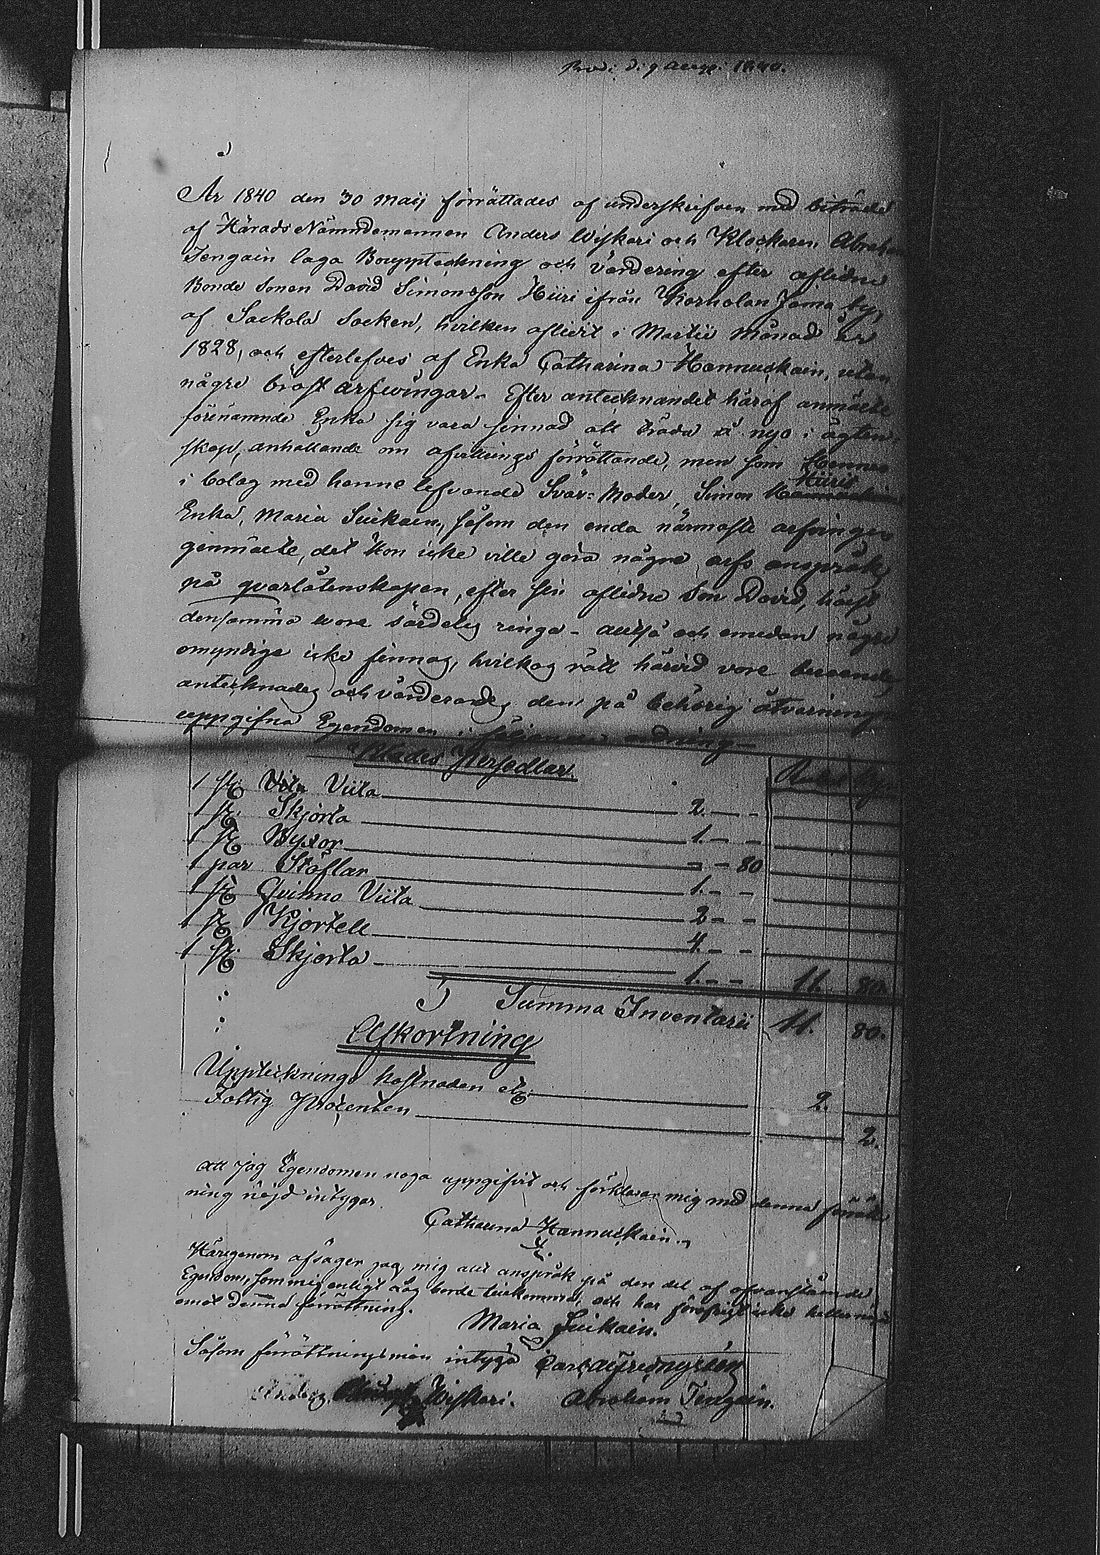 År 1840 den 30 Maij förrättades af underskrifven med biträde
af Härads Nämndemannen Anders Wiskari och Klockaren Abraham
Tengain laga Bouppteckning och Värdering efter aflidne
Bonde Sonen David Simonsson Hiiri ifrån Korholan Jama by,
af Sackola Socken, hvilken aflidit i Martii Månad år
1828, och efterlefves af Enka Catharina Hannuckain, utan
några bröst arfwingar. Efter antecknandet häraf anmälte
förenämnde Enka sig vara sinnad att träda å nyo i ägten
skap, anhållande om afvittrings förrättande, men som Hennes
Hiiris
i bolag med henne lefvande Svär-Moder, Simon
Enka, Maria Suikain, såsom den enda närmaste arfvingen
genmälte, det Hon icke ville göra några arfs anspråk
på qvarlåtenskapen, efter sin aflidne Son David, hälst
densamma vore särdeles ringa - alltså och emedan några
omyndige icke finnas, hvilkas rätt härvid vore beroende
antecknades och värderades den på behörig åtvarning
uppgifna Egendomen i följande ordning
Klädes Persedlar
1 st. Viita 2. - -
1 st. Skjorta 1. - -
1 st. Byxor - - 80
1 par Stöflar 1. - -
1 st. Qvinno Viita 2 - -
1 st. Kjortell 4. - -
1 st. Skjorta 1. - - 11 80.
Summa Inventarii 11. 80.
Afkortning
Upptecknings kostnaden etc. 2.
Fattig Procenten 2.
Att jag Egendomen noga uppgifvit och förklarar mig med denna förrätt
ning nöjd intygar.
Catharina Hannuckain.
Härigenom afsäger jag mig allt anspråk på den del af ofvanstående
Egendom, som mig enligt Lag borde tillkomma och har för öfrigt icke heller något
emot denna förrättning.
Maria Suikain.
Såsom förrättningsmän intyga Carl Alfred Nyrén
Anders Wiskari. Abraham Tengain.